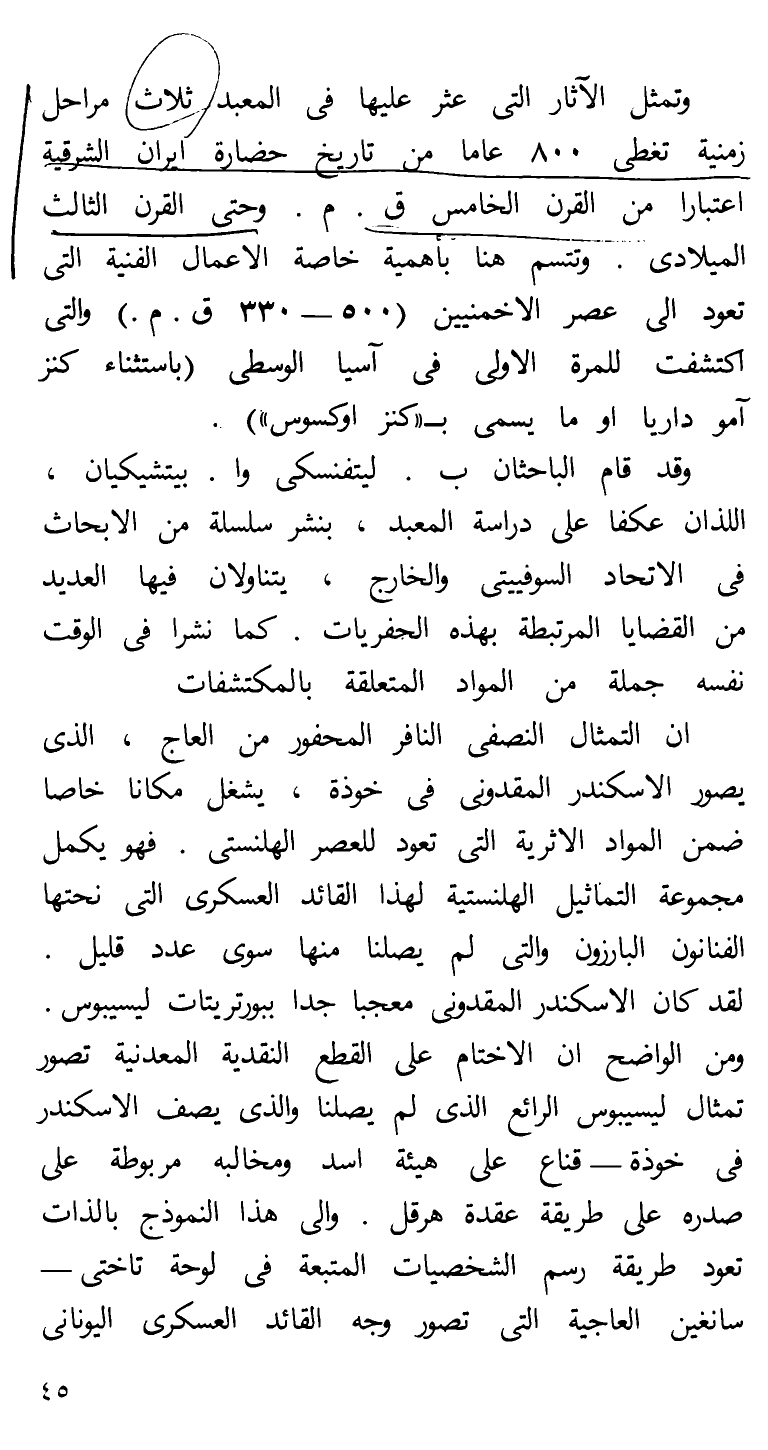 وتمثل الآثار التى عثر عليها فى المعبد ثلاث مراحل
زمنية تغطى ٨٠٠ عاما من تاريخ حضارة ايران الشرقية
اعتبارا من القرن الخامس ق . م . وحتى القرن الثالث
الميلادى . وتتسم هنا بأهمية خاصة الاعمال الفنية التى
تعود الى عصر الاخمنيين (٥٠٠ — ٣٣٠ ق . م .) والتى
اكتشفت للمرة الاولى فى آسيا الوسطى (باستثناء كنز
آمو داريا او ما يسمى بـ«كنز اوكسوس») .
وقد قام الباحثان ب . ليتفنسكى وا . بيتشيكيان ،
اللذان عكفا على دراسة المعبد ، بنشر سلسلة من الابحاث
فى الاتحاد السوفييتى والخارج ، يتناولان فيها العديد
من القضايا المرتبطة بهذه الحفريات . كما نشرا فى الوقت
نفسه جملة من المواد المتعلقة بالمكتشفات
ان التمثال النصفى النافر المحفور من العاج ، الذى
يصور الاسكندر المقدونى فى خوذة ، يشغل مكانا خاصا
ضمن المواد الاثرية التى تعود للعصر الهلنستى . فهو يكمل
مجموعة التماثيل الهلنستية لهذا القائد العسكرى التى نحتها
الفنانون البارزون والتى لم يصلنا منها سوى عدد قليل .
لقد كان الاسكندر المقدونى معجبا جدا ببورتريتات ليسيبوس .
ومن الواضح ان الاختام على القطع النقدية المعدنية تصور
تمثال ليسيبوس الرائع الذى لم يصلنا والذى يصف الاسكندر
فى خوذة — قناع على هيئة اسد ومخالبه مربوطة على
صدره على طريقة عقدة هرقل . والى هذا النموذج بالذات
تعود طريقة رسم الشخصيات المتبعة فى لوحة تاختى —
سانغين العاجية التى تصور وجه القائد العسكرى اليونانى
٤٥